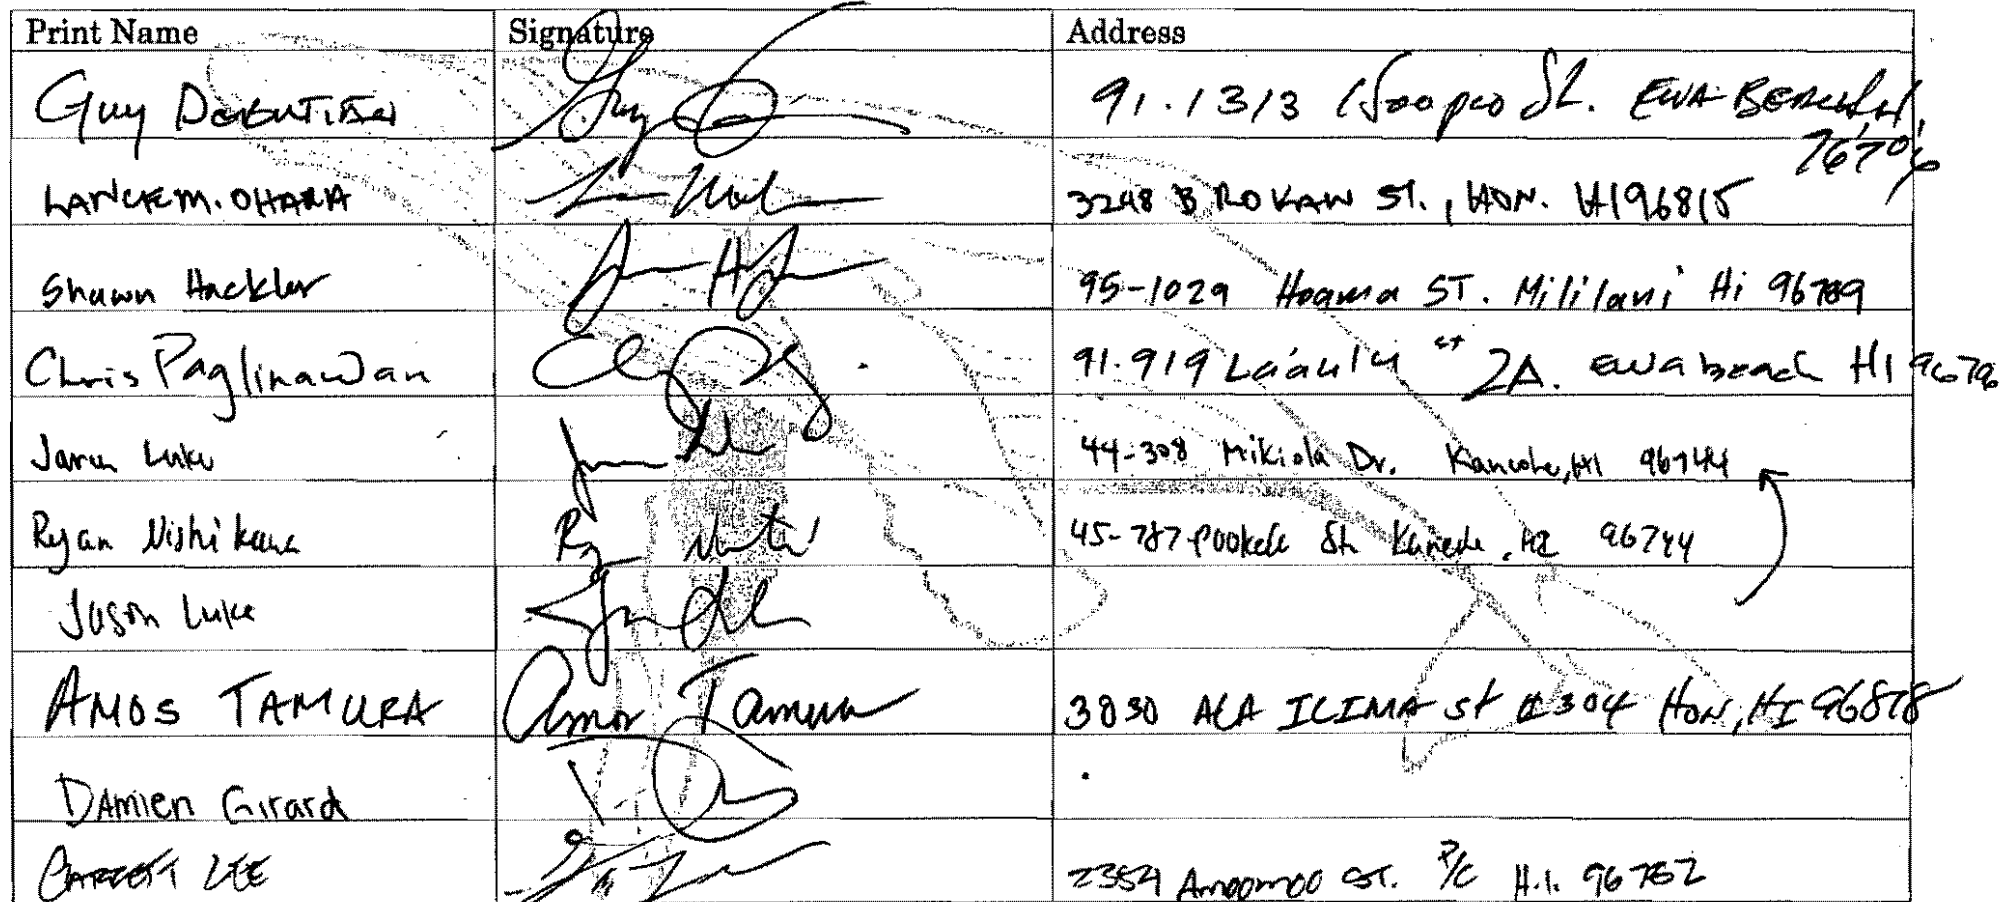 Print Name Signature Address
Guy 91-1313 St. EWA BEACH, HI. 96706
LANCE M. OHARA 3248 B ROKAW ST., HON. HI 96815
Shawn Hackler 95-1029 Hoama ST. Mililani Hi 96789
Chris Paglinawan 91-919 La'aulu st 2A. Ewa beach HI 96706
Jaron Luke 44-308 Mikiola Dr. Kaneohe, HI 96744
Ryan Nishikawa 45-787 Pookela St. Kaneohe, HI 96744
Jason Luke
AMOS TAMURA Amos Tamura 3030 ALA ILIMA St #304 HON, HI 96818
Damien Girard
LEE 2354 Amoomoo ST. P/C H.I. 96782